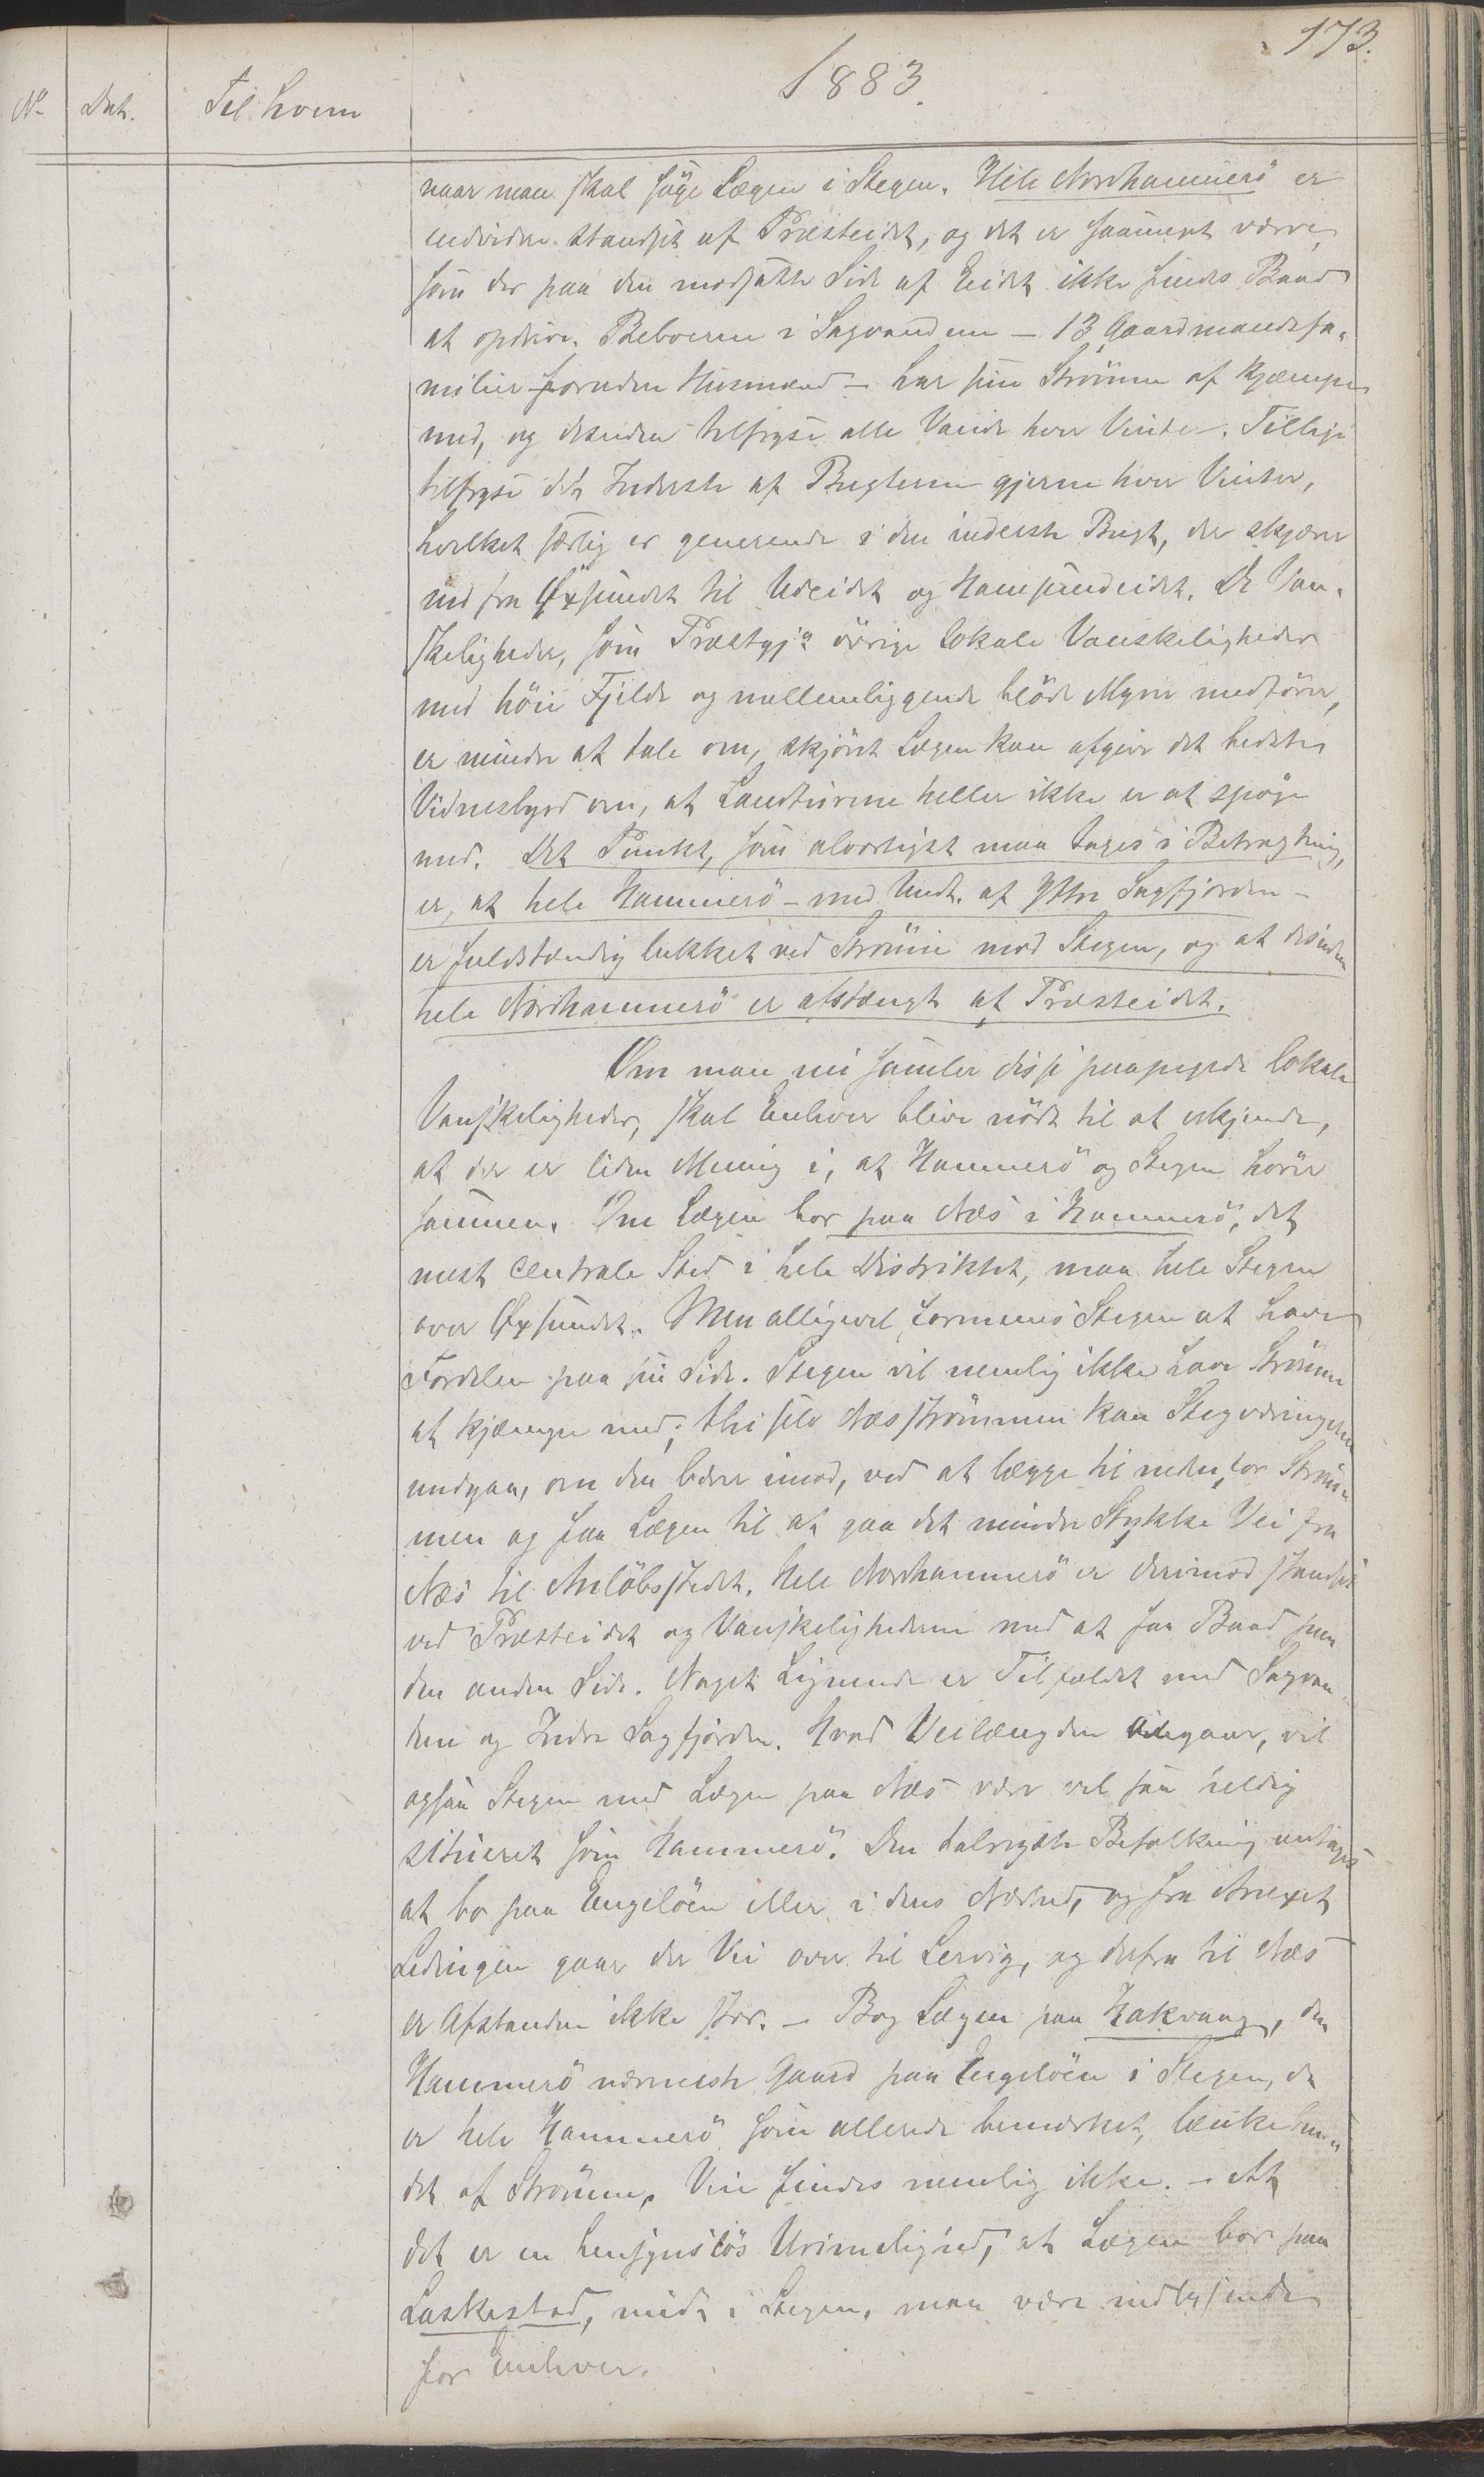 173.
1883.
No Dat. Til hvem
naar man skal søge Lægen i Stegen. Hele Nordhammerö er
endvidere standset af Præsteidet, og det er saameget værre,
som der paa den modsatte Side af Eidet ikke findes Baad
at opdrive. Beboerne i Sagvandene – 13 Gaardmandsfa-
milier foruden Husmænd – har sine Strömme at kjæmpe
med, og desuden tilfryse alle Vande hver Vinter. Tillige
tilfryse det Inderste af Bugterne gjerne hver Vinter,
hvilket særlig er generende i den inderste Bugt, der skjærer
ind fra Øxsundet til Uteidet og Hamsundeidet. De Van-
skeligheder, som Præstgjs övrige lokale Vanskeligheder
med höie Fjelde og mellemliggende blöde Myrer medförer,
er mindre at tale om, skjönt Lægen kan afgive det bedste
Vidnesbyrd om, at Landturene heller ikke er at spöge
med. Det Punkt, som alvorligst maa tages i Betragtning,
er, at hele Hammerö – med Undt. af Ytre Sagfjorden –
er fuldstændig lukket ved Strömme mod Stegen, og at desuden
hele Nordhammerö er afstængt af Præsteidet.
Om man nu samler disse paapegede lokale
Vanskeligheder, skal Enhver blive nödt til at erkjende,
at der er liden Mening i, at Hammerö og Stegen hörer
sammen. Om Lægen bor paa Næs i Hammerö, det
mest centrale Sted i hele Distriktet, maa hele Stegen
over Øxsundet. Men alligevel formenes Stegen at have
Fordelen paa sin Side. Stegen vil nemlig ikke have Strömme
at kjæmpe med; thi selv Næsströmmen kan Stegværingerne
undgaa, om den bærer imod, ved at lægge til nedenfor Ström-
men og faa Lægen til at gaa det mindre Stykke Vei fra
Næs til Anlöbsstedet. Hele Nordhammerö er derimod standset
ved Præsteidet og Vanskelighederne med at faa Baad paa
den anden Side. Noget Lignende er Tilfældet med Sagvan-
dene og Indre Sagfjorden. Hvad Veilængden angaar, vil
ogsaa Stegen med Lægen paa Næs være vel saa heldig
situeret som Hammerö. Den talrigste Befolkning antages
at bo paa Engelöen eller i dens Nærhed, og fra Anexet
Ledingen gaar der Vei over til Lervig, og derfra til Næs
er Afstanden ikke stor. – Bor Lægen paa Hakvaag, den
Hammerö nærmeste Gaard paa Engelöen i Stegen, da
er hele Hammerö, som allerede bemærket, lænkebun-
det af Strömme, Veie findes nemlig ikke. – At
det er en hensynslös Urimelighed, at Lægen bor paa
Laskestad, midt i Stegen, maa være indlysende
for Enhver.